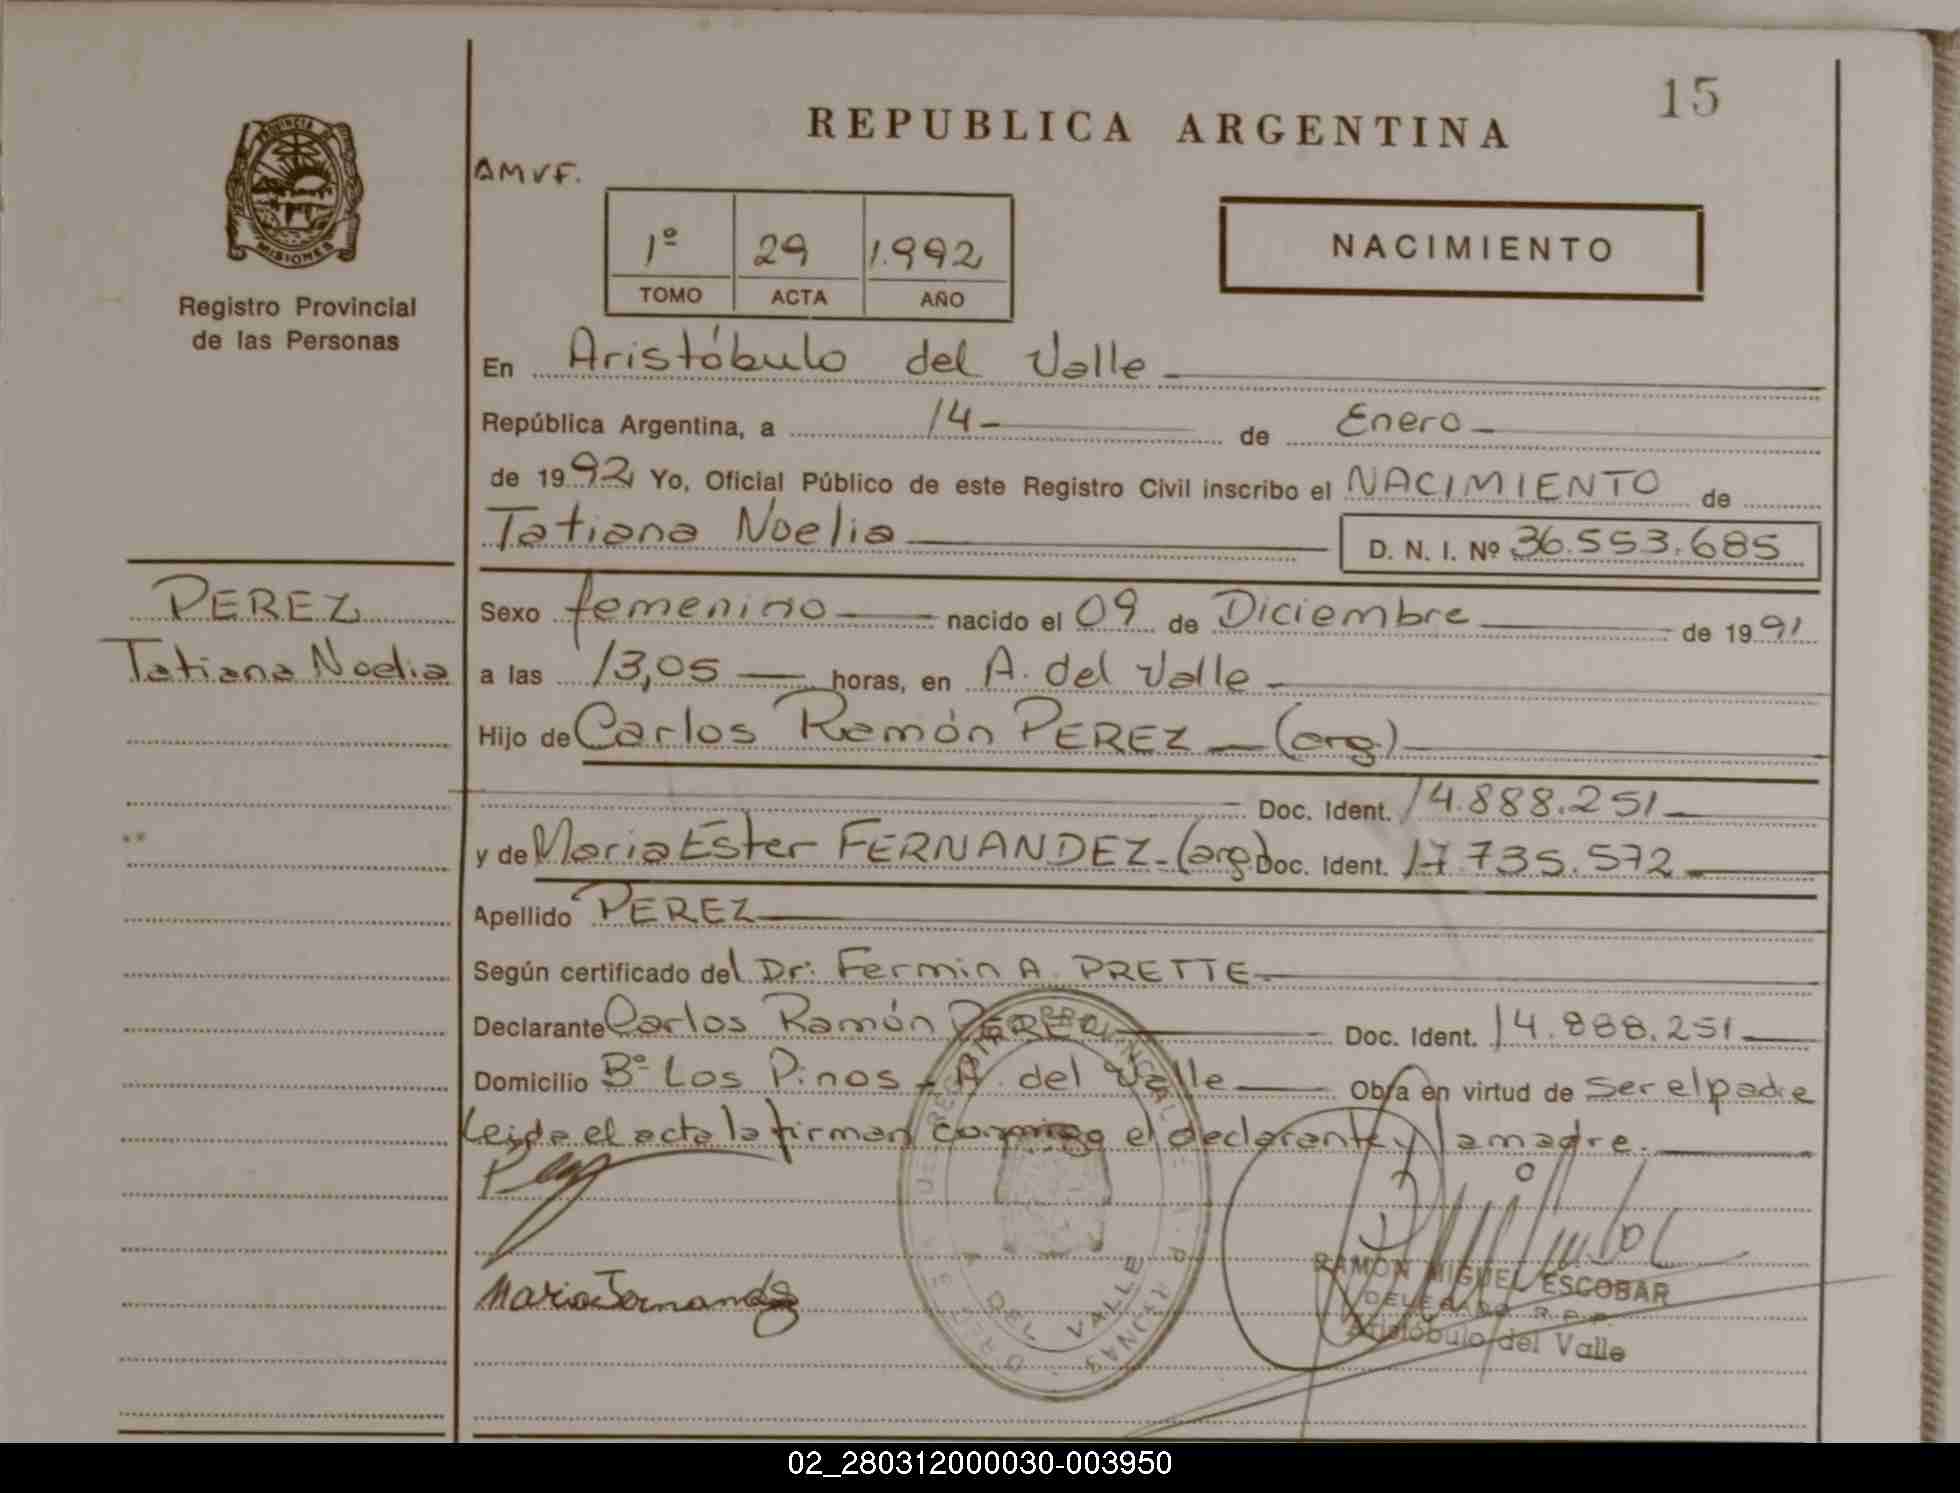 15
REPUBLICA ARGENTINA
PROVINCIA DE
MISIONES
Registro Provincial
de las Personas
AMVF.
1º 29 1.992
TOMO ACTA AÑO
NACIMIENTO
En Aristóbulo del Valle
República Argentina, a 14- de Enero
de 1992 Yo, Oficial Público de este Registro Civil inscribo el NACIMIENTO de
Tatiana Noelia D. N. I. Nº 36.553.685
PEREZ
Tatiana Noelia
Sexo femenino nacido el 09 de Diciembre de 1991
a las 13,05 horas, en A. del Valle
Hijo de Carlos Ramón PEREZ (arg)
Doc. Ident. 14.888.251
y de Maria Ester FERNANDEZ-(arg) Doc. Ident. 17.735.572
Apellido PEREZ
Según certificado del Dr: Fermin A. PRETTE
Declarante Carlos Ramón PEREZ Doc. Ident. 14.888.251
Domicilio Bº Los Pinos - A. del Valle Obra en virtud de ser el padre
Leida el acta la firman conmigo el declarante y la madre.
Maria Fernandez
A. DEL VALLE
RAMON MIGUEL ESCOBAR
DELEGADO R.P.P.
Aristóbulo del Valle
02_280312000030-003950